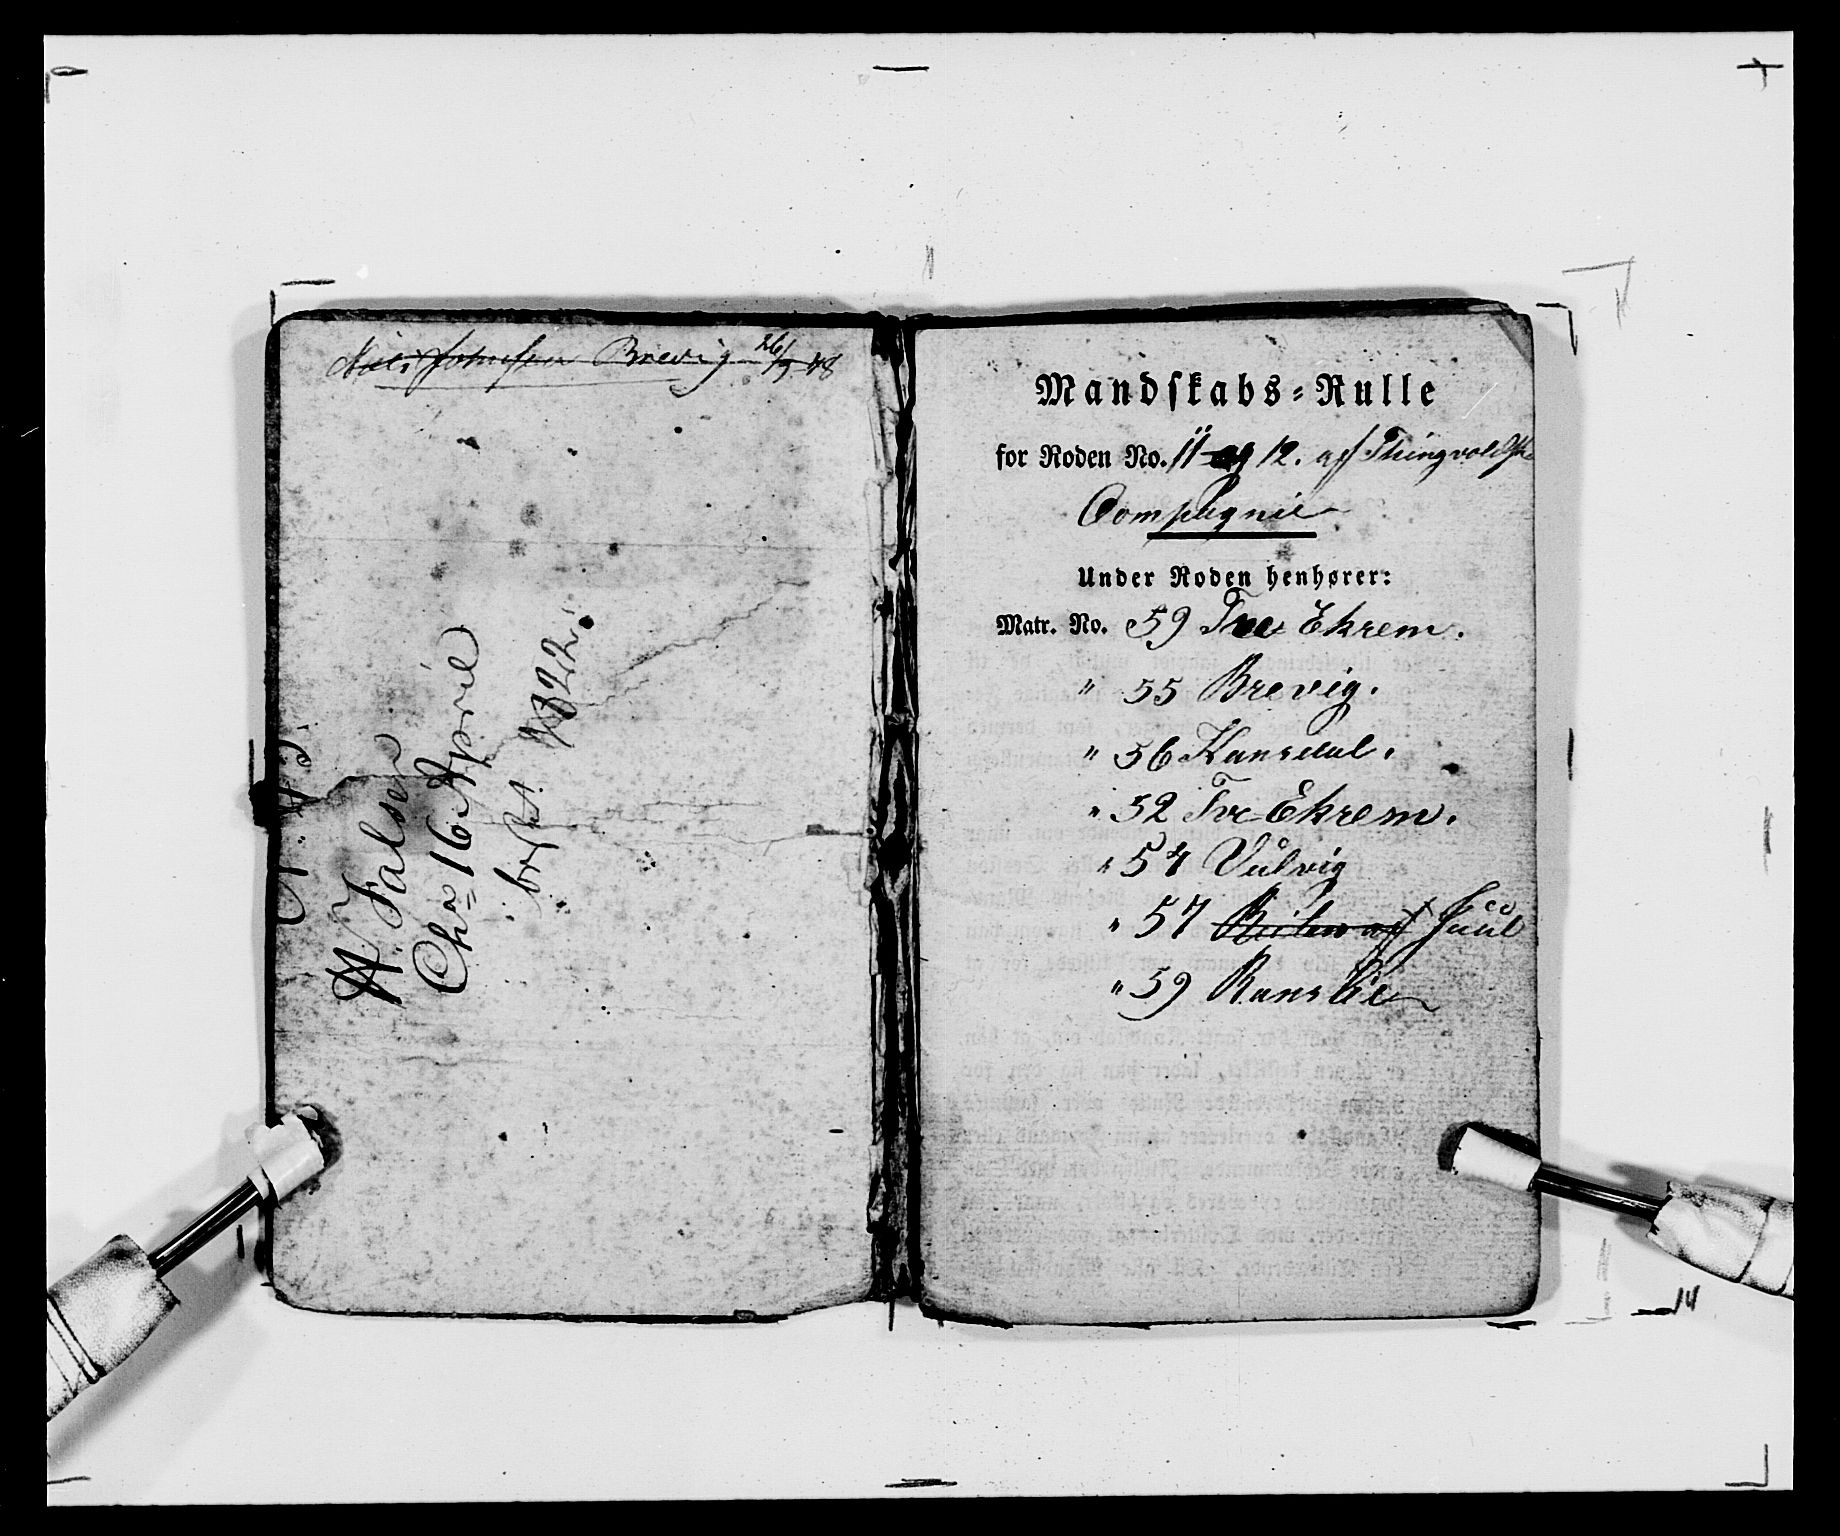 Niels Johnsen Brevig 26/3 48
W. Falsen
Cha 16 April
1822
Mandskabs-Rulle
for Roden No. 11 og 12. af Thingvoldske
Compagnie
Under Roden henhører:
Matr. No. 59 Tve Ekrem.
" 55 Brevig.
" 56 Kansdal.
" 52 Tve Ekrem.
" 54 Vulvig
" 57 af Juul
" 59 Ranslie
14